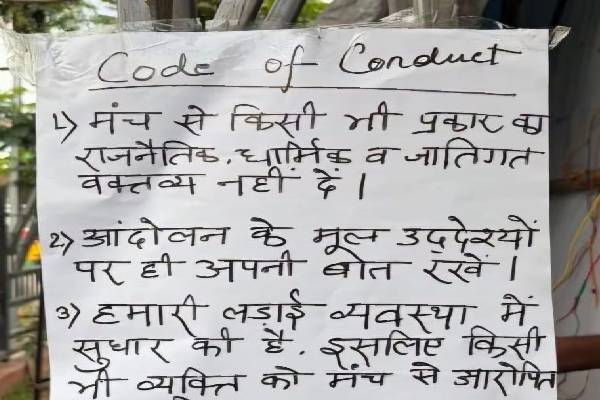 Code of Conduct
1) मंच से किसी भी प्रकार का
राजनैतिक, धार्मिक व जातिगत
वक्तव्य नहीं दें।
2) आंदोलन के मूल उद्देश्यों
पर ही अपनी बात रखें।
3) हमारी लड़ाई व्यवस्था में
सुधार की है. इसलिए किसी
भी व्यक्ति को मंच से आरोपित